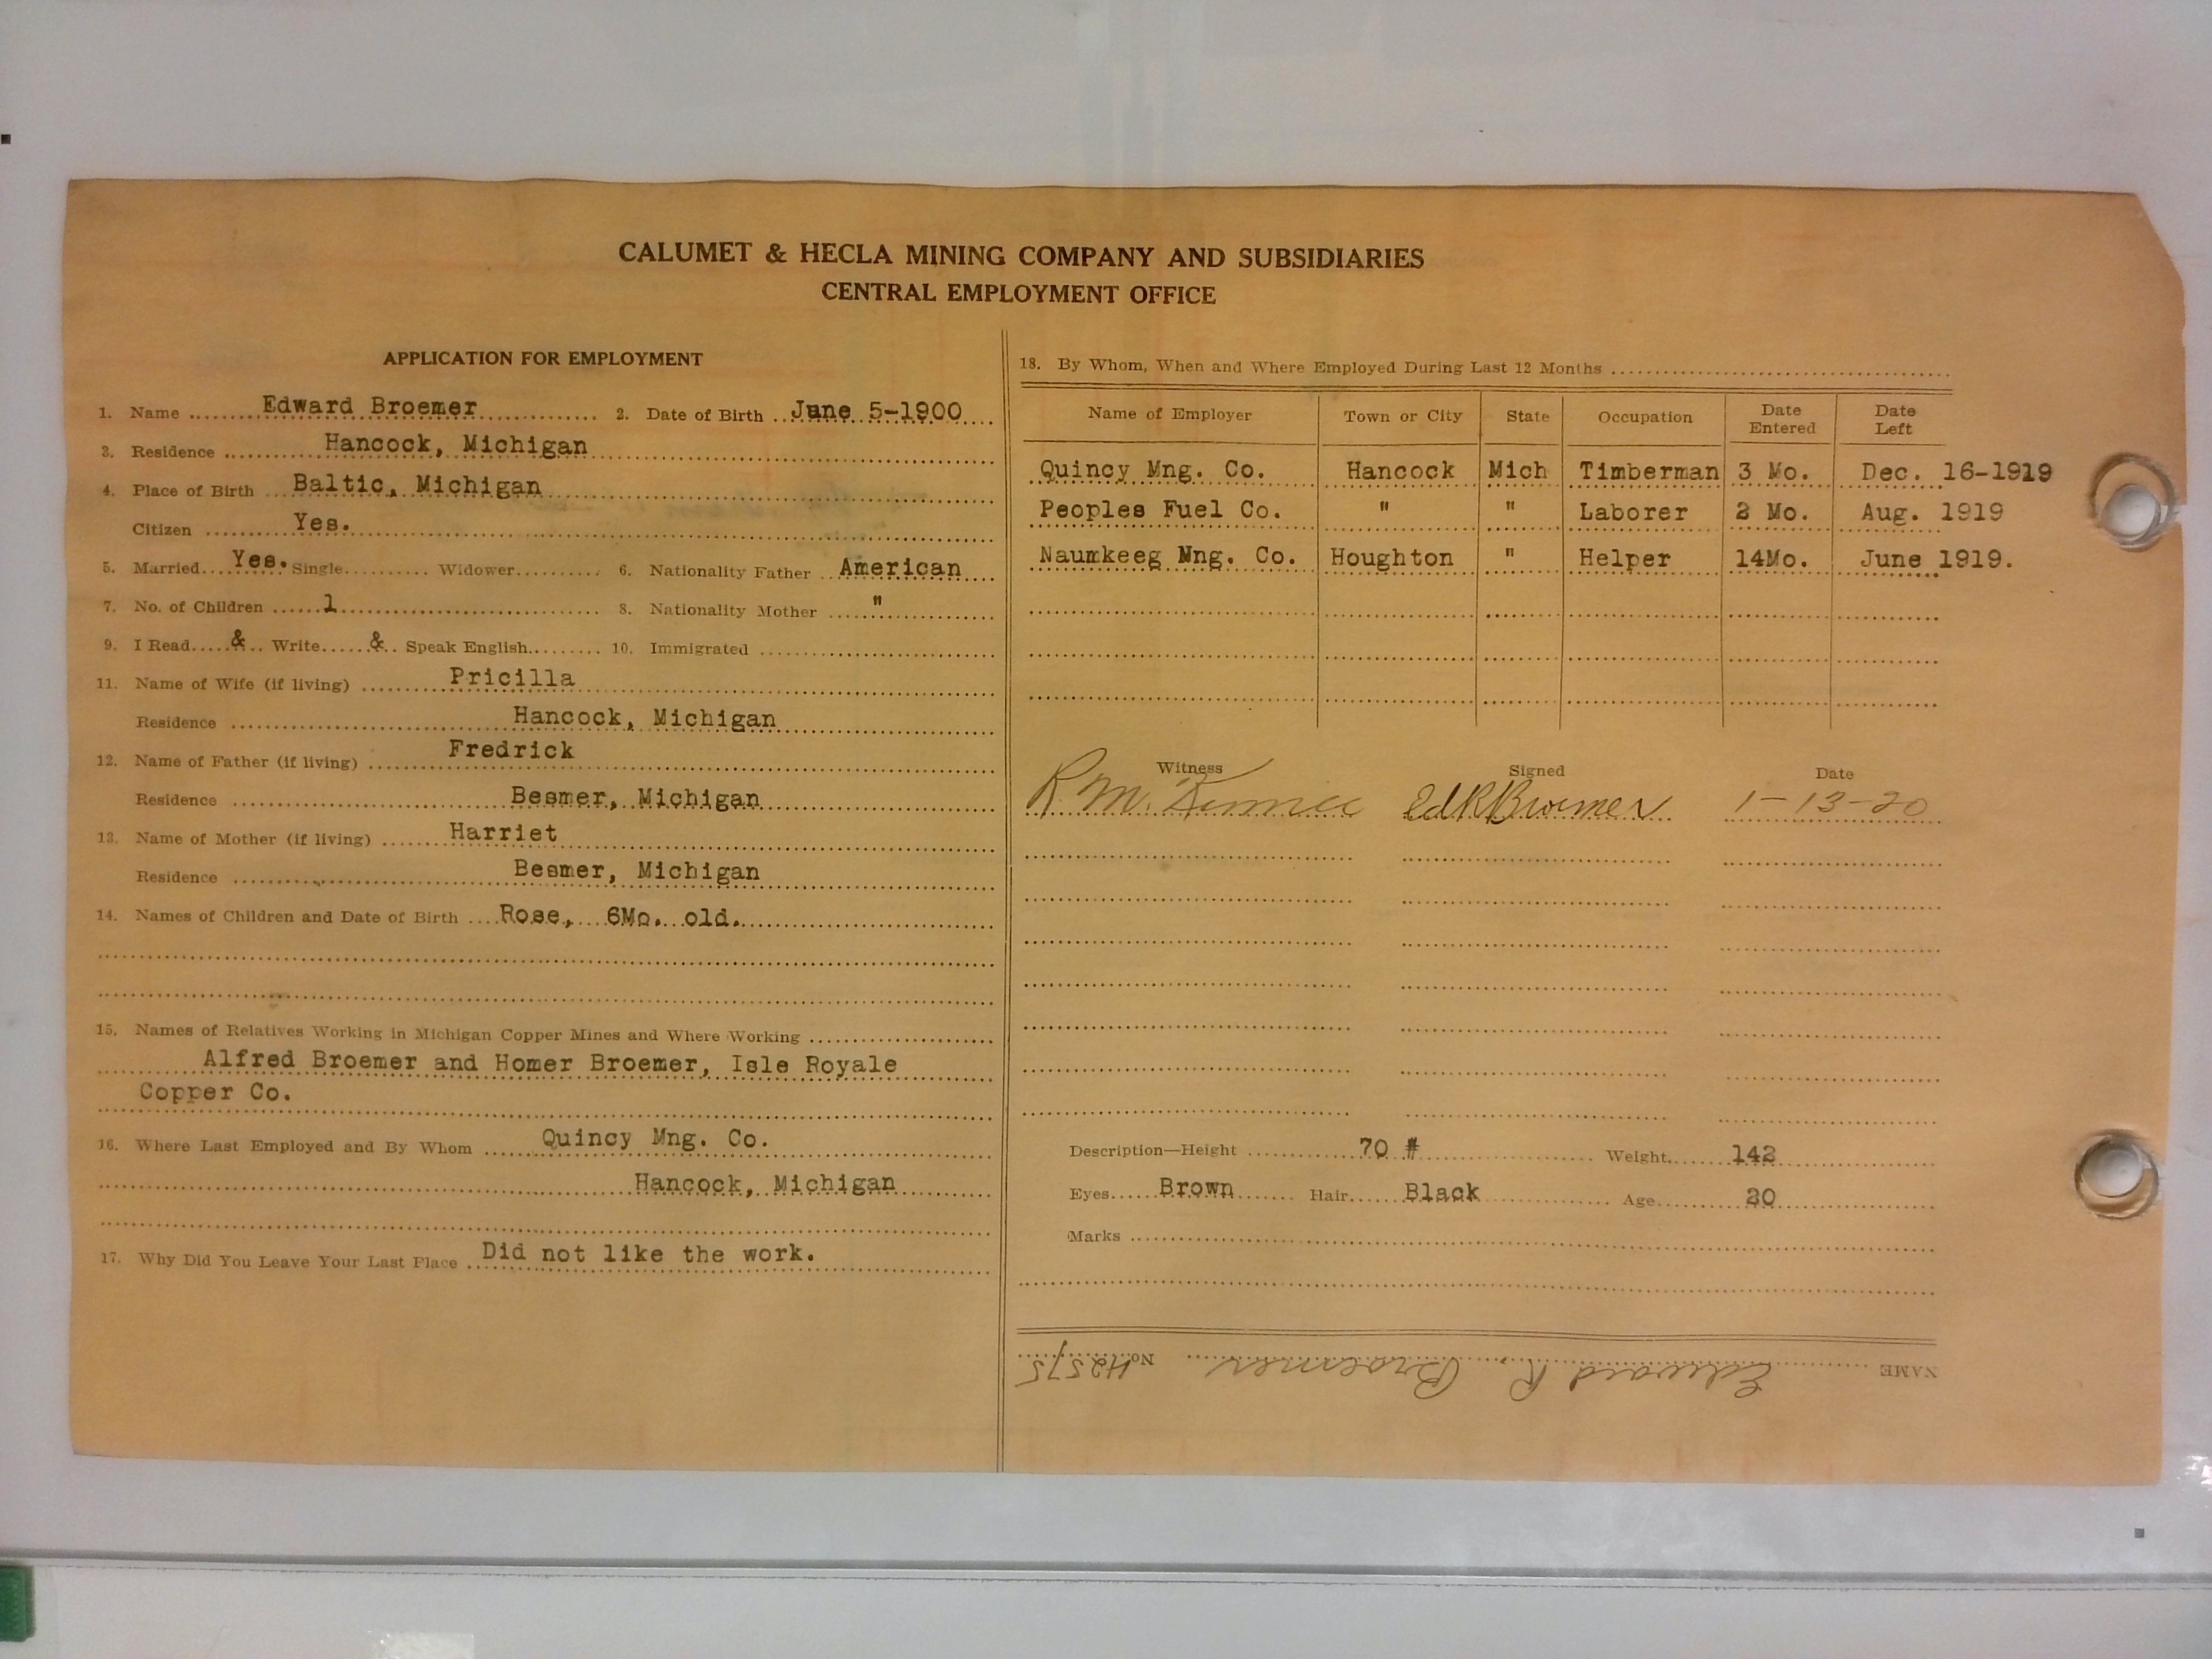 CALUMET & HECLA MINING COMPANY AND SUBSIDIARIES
CENTRAL EMPLOYMENT OFFICE
APPLICATION FOR EMPLOYMENT
1. Name Edward Broemer 2. Date of Birth June 5-1900
3. Residence Hancock, Michigan
4. Place of Birth Baltic, Michigan
Citizen Yes.
5. Married Yes. Single Widower 6. Nationality Father American
7. No. of Children 1 8. Nationality Mother "
9. I Read & Write & Speak English 10. Immigrated
11. Name of Wife (if living) Pricilla
Residence Hancock, Michigan
12. Name of Father (if living) Fredrick
Residence Besmer, Michigan
13. Name of Mother (if living) Harriet
Residence Besmer, Michigan
14. Names of Children and Date of Birth Rose, 6Mo. old.
15. Names of Relatives Working in Michigan Copper Mines and Where Working
Alfred Broemer and Homer Broemer, Isle Royale
Copper Co.
16. Where Last Employed and By Whom Quincy Mng. Co.
Hancock, Michigan
17. Why Did You Leave Your Last Place Did not like the work.
18. By Whom, When and Where Employed During Last 12 Months
Name of Employer Town or City State Occupation Date Entered Date Left
Quincy Mng. Co. Hancock Mich Timberman 3 Mo. Dec. 16-1919
Peoples Fuel Co. " " Laborer 2 Mo. Aug. 1919
Naumkeeg Mng. Co. Houghton " Helper 14Mo. June 1919.
Witness Signed Date
R. M. Ed R Broemer 1-13-20
Description—Height 70 # Weight 142
Eyes Brown Hair Black Age 20
Marks
NAME Edward R. Broemer No. 42575